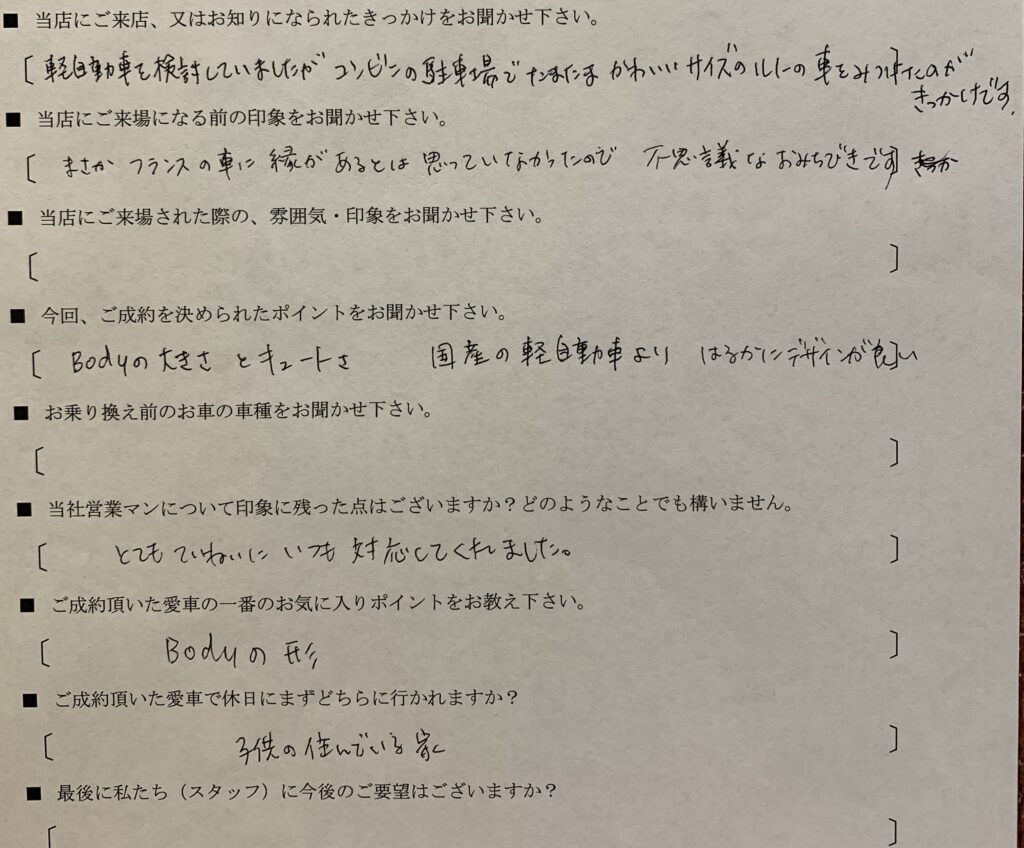 ■ 当店にご来店、又はお知りになられたきっかけをお聞かせ下さい。
[ 軽自動車を検討していましたが コンビンの駐車場で たまたま かわいい サイズの ルノーの 車をみつけたのが ]
きっかけです.
■ 当店にご来場になる前の印象をお聞かせ下さい。
[ まさか フランスの車に 縁があるとは 思っていなかったので 不思議な おみちびきです ]
■ 当店にご来場された際の、雰囲気・印象をお聞かせ下さい。
[ ]
■ 今回、ご成約を決められたポイントをお聞かせ下さい。
[ Bodyの大きさ とキュートさ 国産の軽自動車より はるかにデザインが良い ]
■ お乗り換え前のお車の車種をお聞かせ下さい。
[ ]
■ 当社営業マンについて印象に残った点はございますか？どのようなことでも構いません。
[ とても ていねいに いつも 対応してくれました。 ]
■ ご成約頂いた愛車の一番のお気に入りポイントをお教え下さい。
[ Bodyの 形 ]
■ ご成約頂いた愛車で休日にまずどちらに行かれますか？
[ 子供の住んでいる 家に ]
■ 最後に私たち（スタッフ）に今後のご要望はございますか？
[ ]